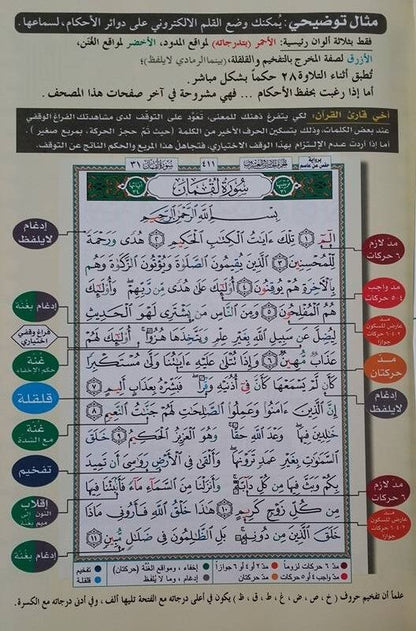 مثال توضيحي: يُمكنك وضع القلم الالكتروني على دوائر الأحكام، لسماعها.
فقط بثلاثة ألوان رئيسية: الأحمر (بتدرجاته) لمواقع المدود، الأخضر لمواقع الغُنن،
الأزرق لصفة المخرج بالتفخيم والقلقلة، (بينما الرمادي لايلفظ)؛
تُطبق أثناء التلاوة ٢٨ حكماً بشكل مباشر.
أما إذا رغبت بحفظ الأحكام ... فهي مشروحة في آخر صفحات هذا المصحف.
أخي قارئ القرآن: لكي يتفرغ ذهنك للمعنى، تعوّد على التوقف لدى مشاهدتك الفراغ الوقفي
عند بعض الكلمات، وذلك بتسكين الحرف الأخير من الكلمة (حيث تمّ حجز الحركة، بمربع صغير)
أما إذا أردت عدم الالتزام بهذا الوقف الاختياري، فتجاهل هذا المربع والحكم الناتج عن التوقف.
سورة لقمان ٣١
٤١١
سورة لقمان ٣١
سُورَةُ لُقْمَان
بِسْمِ اللَّهِ الرَّحْمَٰنِ الرَّحِيمِ
الٓمٓ ١ تِلْكَ ءَايَٰتُ الْكِتَٰبِ الْحَكِيمِ ٢ هُدًى وَرَحْمَةً
لِّلْمُحْسِنِينَ ٣ الَّذِينَ يُقِيمُونَ الصَّلَوٰةَ وَيُؤْتُونَ الزَّكَوٰةَ وَهُم
بِالْءَاخِرَةِ هُمْ يُوقِنُونَ ٤ أُولَٰٓئِكَ عَلَىٰ هُدًى مِّن رَّبِّهِمْ وَأُولَٰٓئِكَ
هُمُ الْمُفْلِحُونَ ٥ وَمِنَ النَّاسِ مَن يَشْتَرِي لَهْوَ الْحَدِيثِ
لِيُضِلَّ عَن سَبِيلِ اللَّهِ بِغَيْرِ عِلْمٍ وَيَتَّخِذَهَا هُزُوًا أُولَٰٓئِكَ لَهُمْ
عَذَابٌ مُّهِينٌ ٦ وَإِذَا تُتْلَىٰ عَلَيْهِ ءَايَٰتُنَا وَلَّىٰ مُسْتَكْبِرًا
كَأَن لَّمْ يَسْمَعْهَا كَأَنَّ فِي أُذُنَيْهِ وَقْرًا فَبَشِّرْهُ بِعَذَابٍ أَلِيمٍ ٧
إِنَّ الَّذِينَ ءَامَنُوا وَعَمِلُوا الصَّٰلِحَٰتِ لَهُمْ جَنَّٰتُ النَّعِيمِ ٨
خَٰلِدِينَ فِيهَا وَعْدَ اللَّهِ حَقًّا وَهُوَ الْعَزِيزُ الْحَكِيمُ ٩ خَلَقَ
السَّمَٰوَٰتِ بِغَيْرِ عَمَدٍ تَرَوْنَهَا وَأَلْقَىٰ فِي الْأَرْضِ رَوَٰسِيَ أَن تَمِيدَ
بِكُمْ وَبَثَّ فِيهَا مِن كُلِّ دَابَّةٍ وَأَنزَلْنَا مِنَ السَّمَاءِ مَاءً فَأَنبَتْنَا فِيهَا
مِن كُلِّ زَوْجٍ كَرِيمٍ ١٠ هَٰذَا خَلْقُ اللَّهِ فَأَرُونِي مَاذَا
خَلَقَ الَّذِينَ مِن دُونِهِ بَلِ الظَّٰلِمُونَ فِي ضَلَٰلٍ مُّبِينٍ ١١
مدّ لازم
٦ حركات
مدّ واجب
٤ أو ٥ حركات
مدّ عارض للسكون
٢ ٤ ٦ حركات
جوازاً
مدّ
حركتان
إدغام
لايلفظ
مدّ لازم
٦ حركات
مدّ عارض للسكون
٢ ٤ ٦ حركات
جوازاً
إدغام
لايلفظ
إدغام بغنة
فراغ وقفي
اختياري
غنة
حكم الإخفاء
قلقلة
غنة
مع الشدة
تفخيم
إقلاب
النون إلى
ميم بغنة
إدغام بغنة
مدّ ٦ حركات لزوماً
مدّ ٢ أو ٤ أو ٦ جوازاً
إخفاء، ومواقع الغُنّة (حركتان)
تفخيم
مدّ واجب ٤ أو ٥ حركات
مدّ حركتان
إدغام، وما لا يُلفظ
قلقلة
علماً أن تفخيم حروف (خ ، ص ، ض ، غ ، ط ، ق ، ظ) يكون في أعلى درجاته مع الفتحة تليها ألف، وفي أدنى درجاته مع الكسرة.